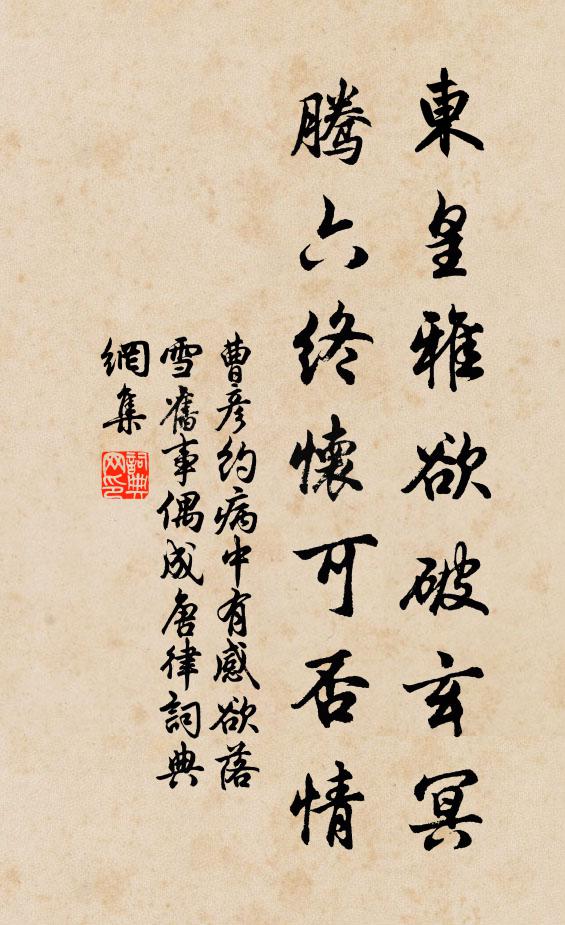 東皇雅欲破玄冥
騰六終懷可否情
曹彦約病中有感欲落
雪舊事偶成唐律詞典
網集
詞典網印